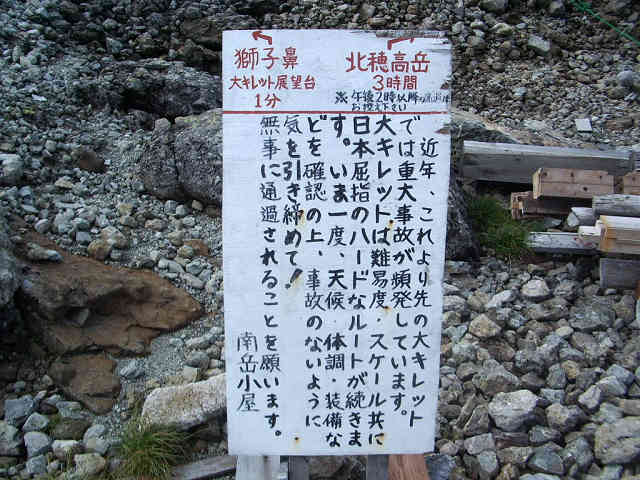 獅子鼻
大キレット展望台
1分
北穂高岳
3時間
※午後2時以降の出発は
お控え下さい
近年、これより先の大キレット
では重大事故が頻発しています。
大キレットは難易度・スケール共に
日本屈指のハードなルートが続きま
す。いま一度、天候・体調・装備な
どを確認の上、事故のないように
気を引き締めて!
無事に通過されることを願います。
南岳小屋